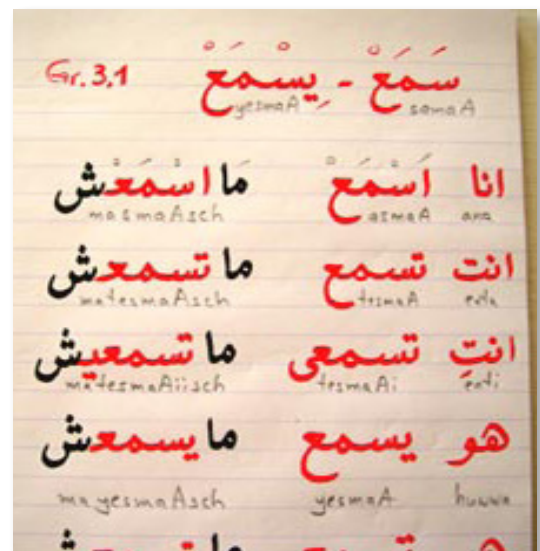 سَمَعْ - يِسْمَعْ Gr. 3.1
samaA yesmaA
انا اَسْمَعْ مَا اسْمَعْش
ana asmaA masmaAsch
انت تسمع ما تسمعش
enta tesmaA matesmaAsch
انتِ تسمعى ما تسمعيش
enti tesmaAi matesmaAiisch
هو يسمع ما يسمعش
huwwa yesmaA ma yesmaAsch